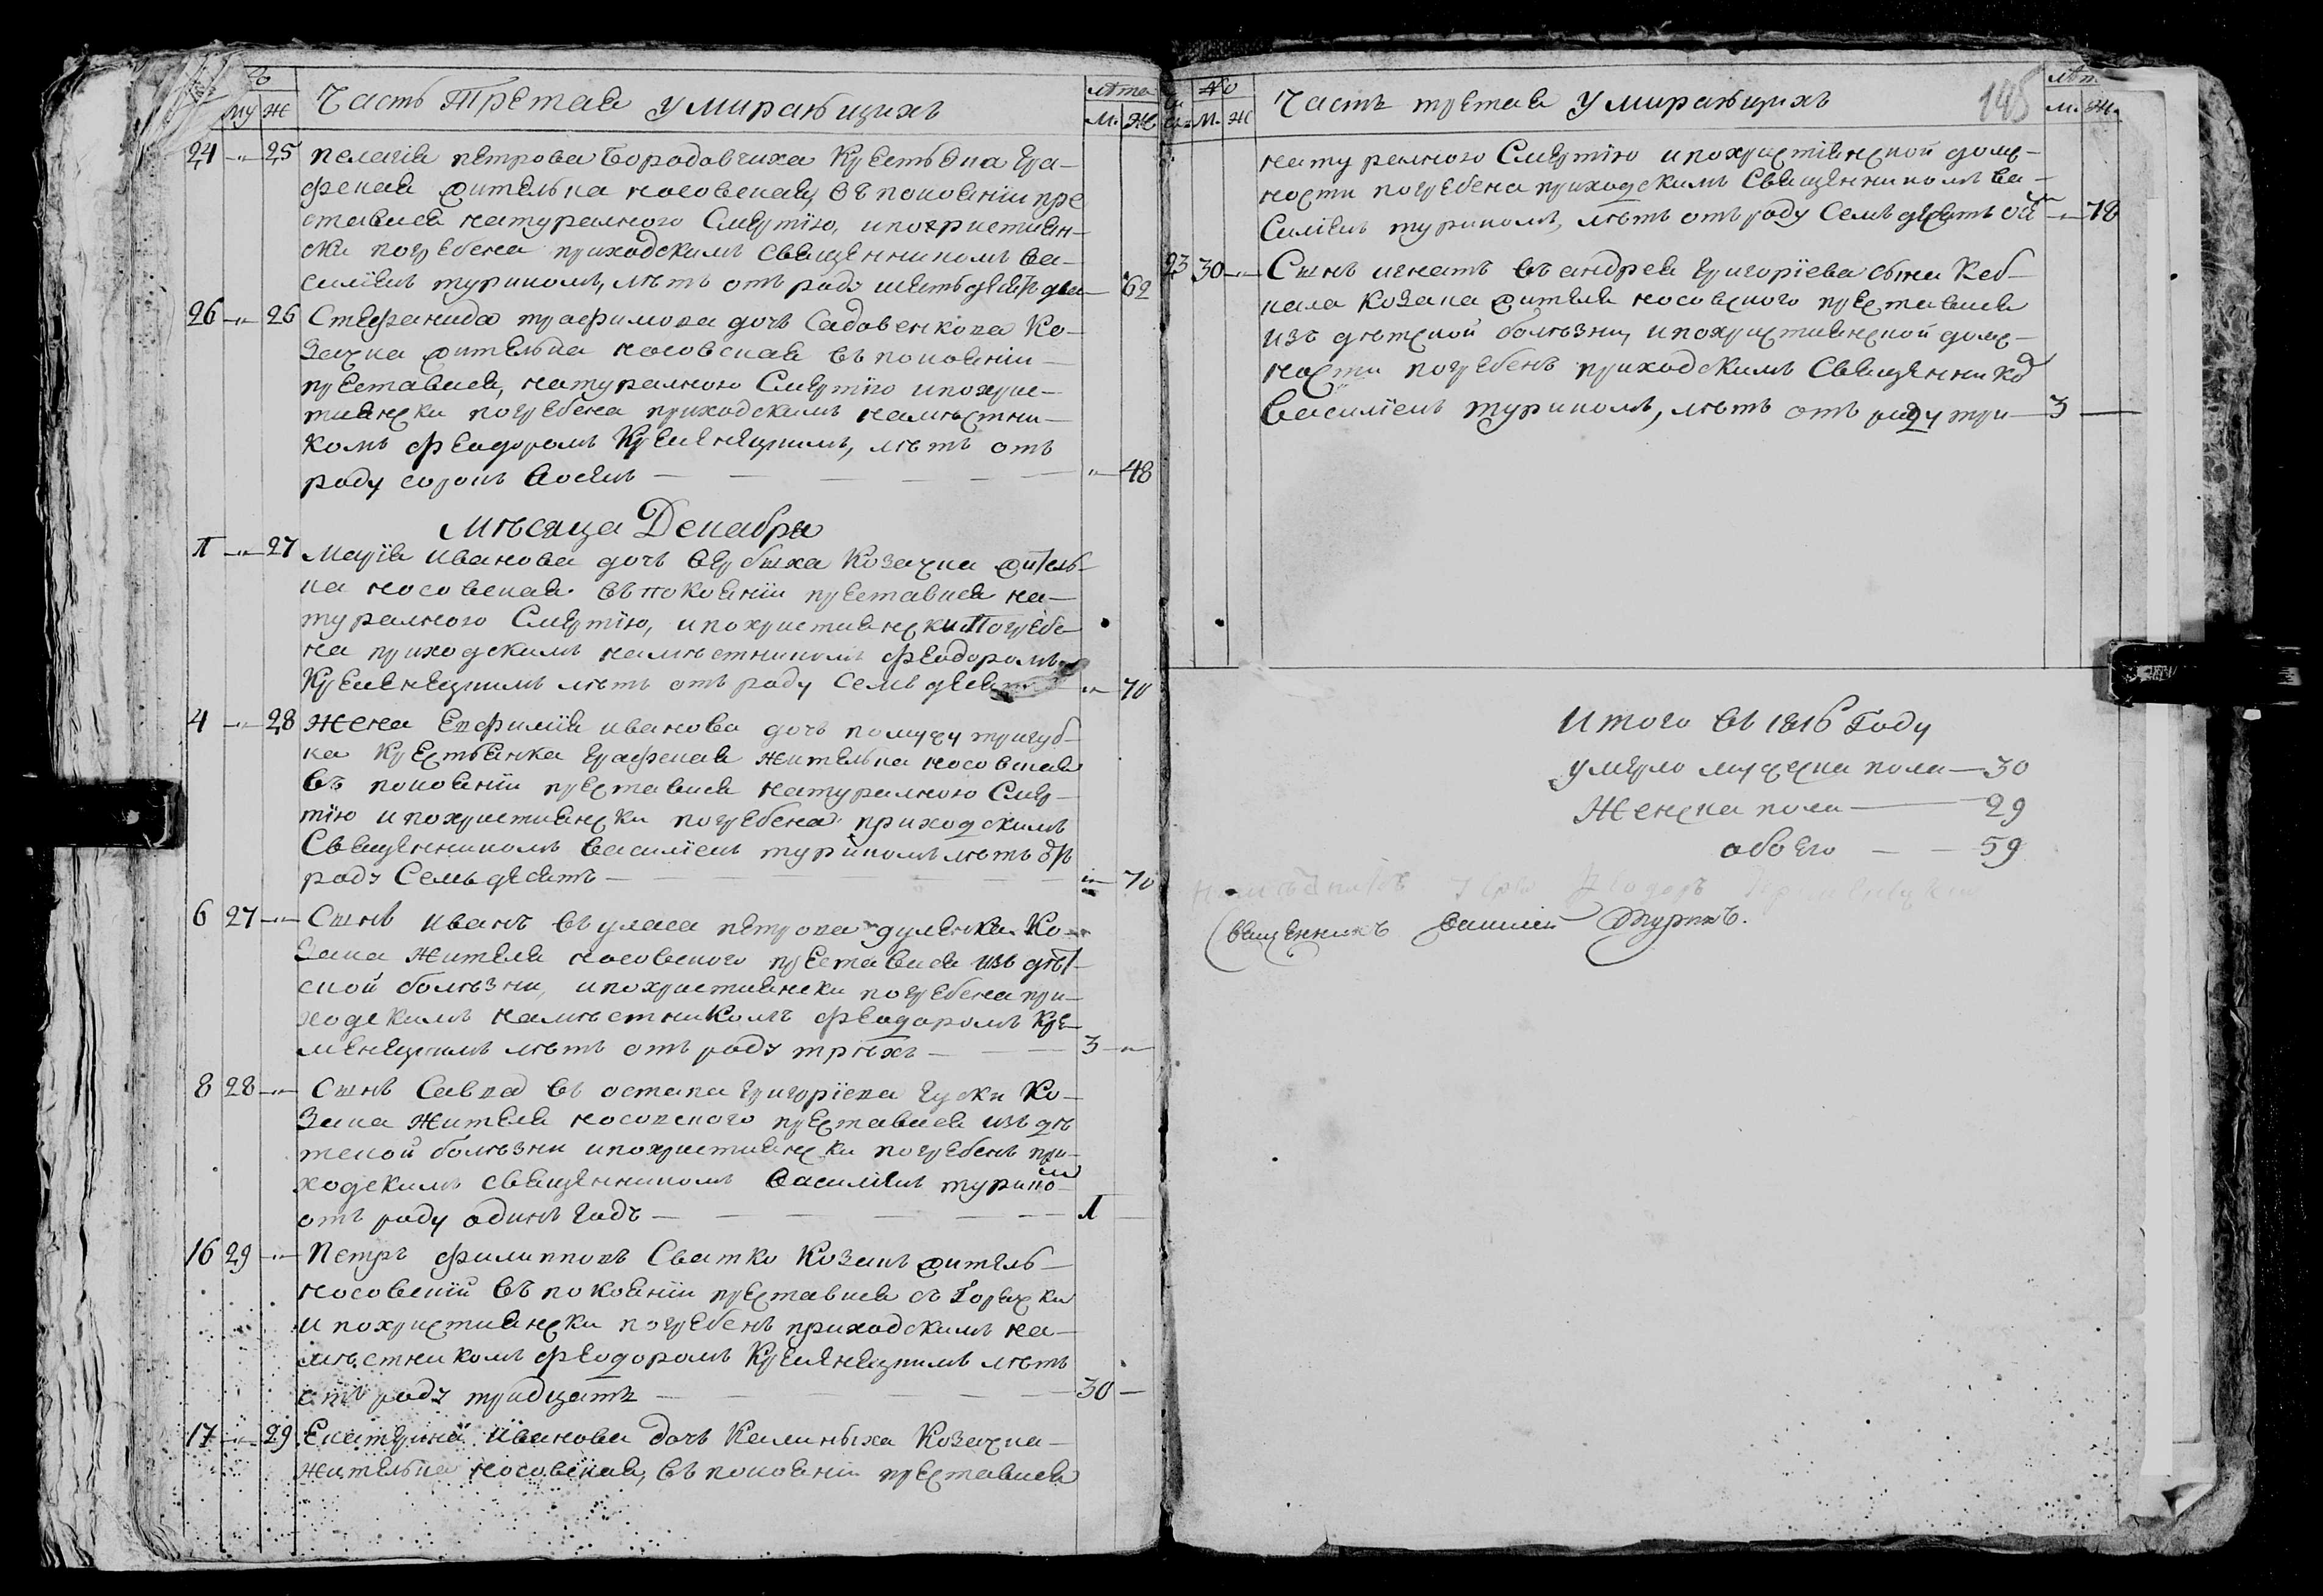 му ж Часть Третая умирающихъ лѣта м. ж
24 — 25 пелагія петрова Бородавчиха Крестьянка Гра-
фская жителька носовская, въ покоѣніи пре
ставися натуралною Смертїю, ипохристиян-
ски погребена приходскимъ священникомъ ва-
силіемъ туриком, лѣтъ отъ роду шестьдесятъ два — 62
26 — 26 Стефанида трофимова дочь Садовенкова Ко-
зачка жителька носовская въ покоѣніи
преставися, натуралною Смертїю ипохрис-
тиянски погребена приходскимъ намѣстни-
комъ феодоромъ Кременецкимъ, лѣтъ отъ
роду сорокъ восемъ — 48
Мѣсяца Декабря
1 — 27 Марїя иванова дочь вербыха Козачка житель-
ка носовская въ покоянїи преставися на-
туралною Смертїю, ипохристиянски Погребе
на приходскимъ намѣстникомъ феодоромъ
Кременецкимъ лѣтъ отъ роду Семьдесят — 70
4 — 28 Жена Евфимїя иванова дочь помужу тригуб-
ка Крестьянка графская жителька носовская
въ покоянїи преставися натуралною Смер-
тїю ипохристиянски погребена приходскимъ
Священникомъ василїемъ турикомъ лѣтъ от
роду Семьдесятъ — 70
6 27 — Сынъ иванъ въ уласа петрова дуленка Ко-
зака жителя носовского преставися изъ дѣт-
ской болѣзни, ипохристиянски погребена при-
ходскимъ намѣстникомъ феодоромъ Кре-
менецкимъ лѣтъ отъ роду трѣхъ — 3 —
8 28 — Сынъ Савва въ остапа григорїева гуски Ко-
зака жителя носовского преставися изъ дѣ
тской болѣзни ипохристиянски погребенъ при-
ходскимъ священникомъ василїемъ турикомъ
отъ роду одинъ годъ — 1
16 29 — Петръ филипповъ Сватко Козакъ житель
носовскій въ покоянїи преставися съ Горячки
и похристиянски погребенъ приходскимъ на-
мѣстникомъ феодоромъ Кременецкимъ лѣтъ
отъ роду тридцать — 30 —
17 — 29 Екатерина иванова дочь Калиныха Козачка
жителька носовская, въ покоянїи преставися
№ м. ж Часть третая умирающихъ 145 лѣт м. ж.
натуралною Смертїю ипохристїянской долж-
ности погребена приходскимъ Священникомъ ва-
силїемъ турикомъ, лѣтъ отъ роду Семьдесятъ осм — 78
23 30 — Сынъ игнатъ въ андрея григорїева сына Кеб-
кала Козака жителя носовского преставися
изъ дѣтской болѣзни, ипохристиянской долж-
ности погребенъ приходскимъ Священнико
василїемъ турикомъ, лѣтъ отъ роду три — 3 —
Итого въ 1816 Году
умерло мужеска пола — 30
Женска пола — 29
обоего — 59
Намѣстникъ Іерей Феодоръ Кременецкий
священникъ василій Турикъ.